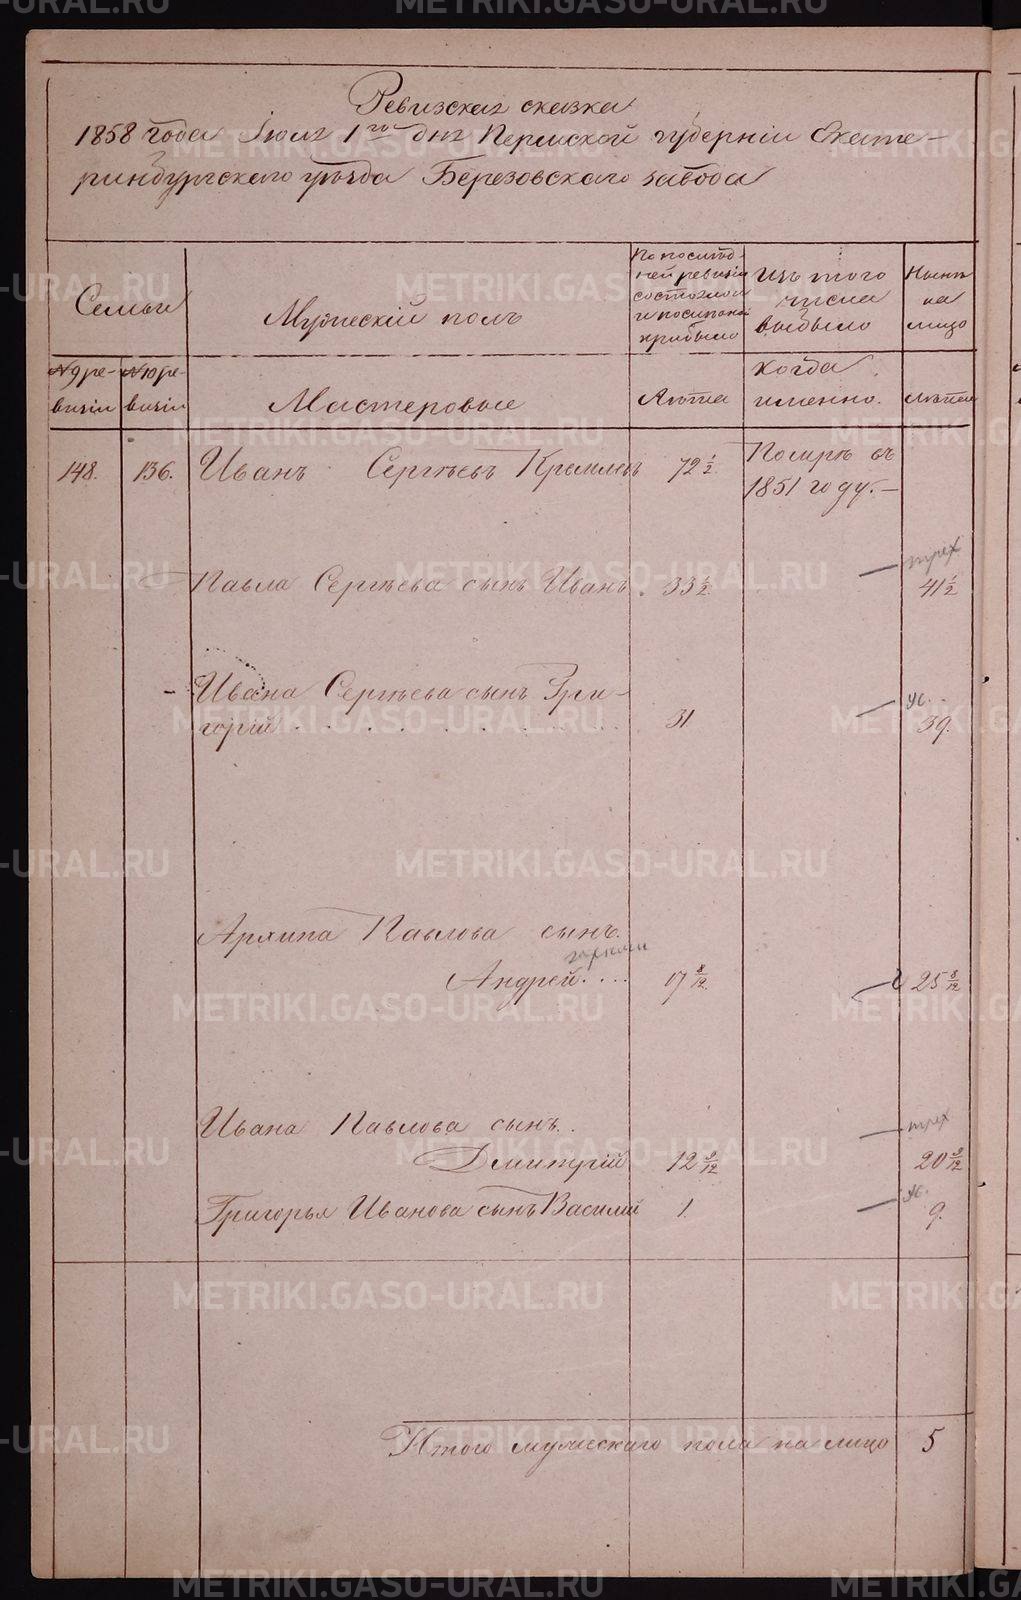 Ревизская сказка
1858 года Іюля 1го дня Пермской губерніи Екате-
ринбургскаго уѣзда Березовскаго завода
Семьи
Мужескій полъ
По послѣд-
ней ревизіи
состояло
и послѣ того
прибыло
Изъ того
числа
выбыло
Нынѣ
на
лицо
№ 9 ре-
визіи
№ 10 ре-
визіи
Мастеровые
Лѣта
когда
именно.
лѣта
148.
136.
Иванъ Сергѣевъ Кремлевъ
72 1/2
Помре въ
1851 году.—
Павла Сергѣева сынъ Иванъ
33 1/2
41 1/2
Ивана Сергѣева сынъ Гри-
горій
31
39.
Архипа Павлова сынъ.
Андрей....
17 8/12
25 8/12
Ивана Павлова сынъ.
Дмитрій
12 9/12
20 9/12
Григорья Иванова сынъ Василій
1.
9.
Итого мужескаго пола на лицо
5
METRIKI.GASO-URAL.RU